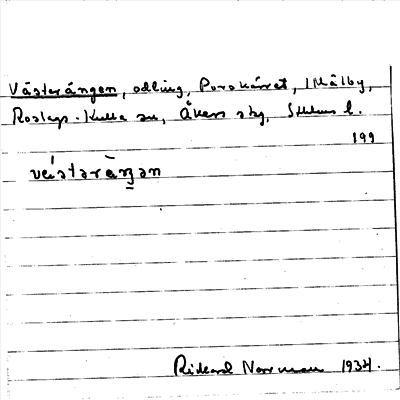 Västerängen, odling, Porskärret, 1 Mälby,
Roslags-Kulla sn, Åkers skg, Sthlms l.
199
Rickard Norrman 1934.